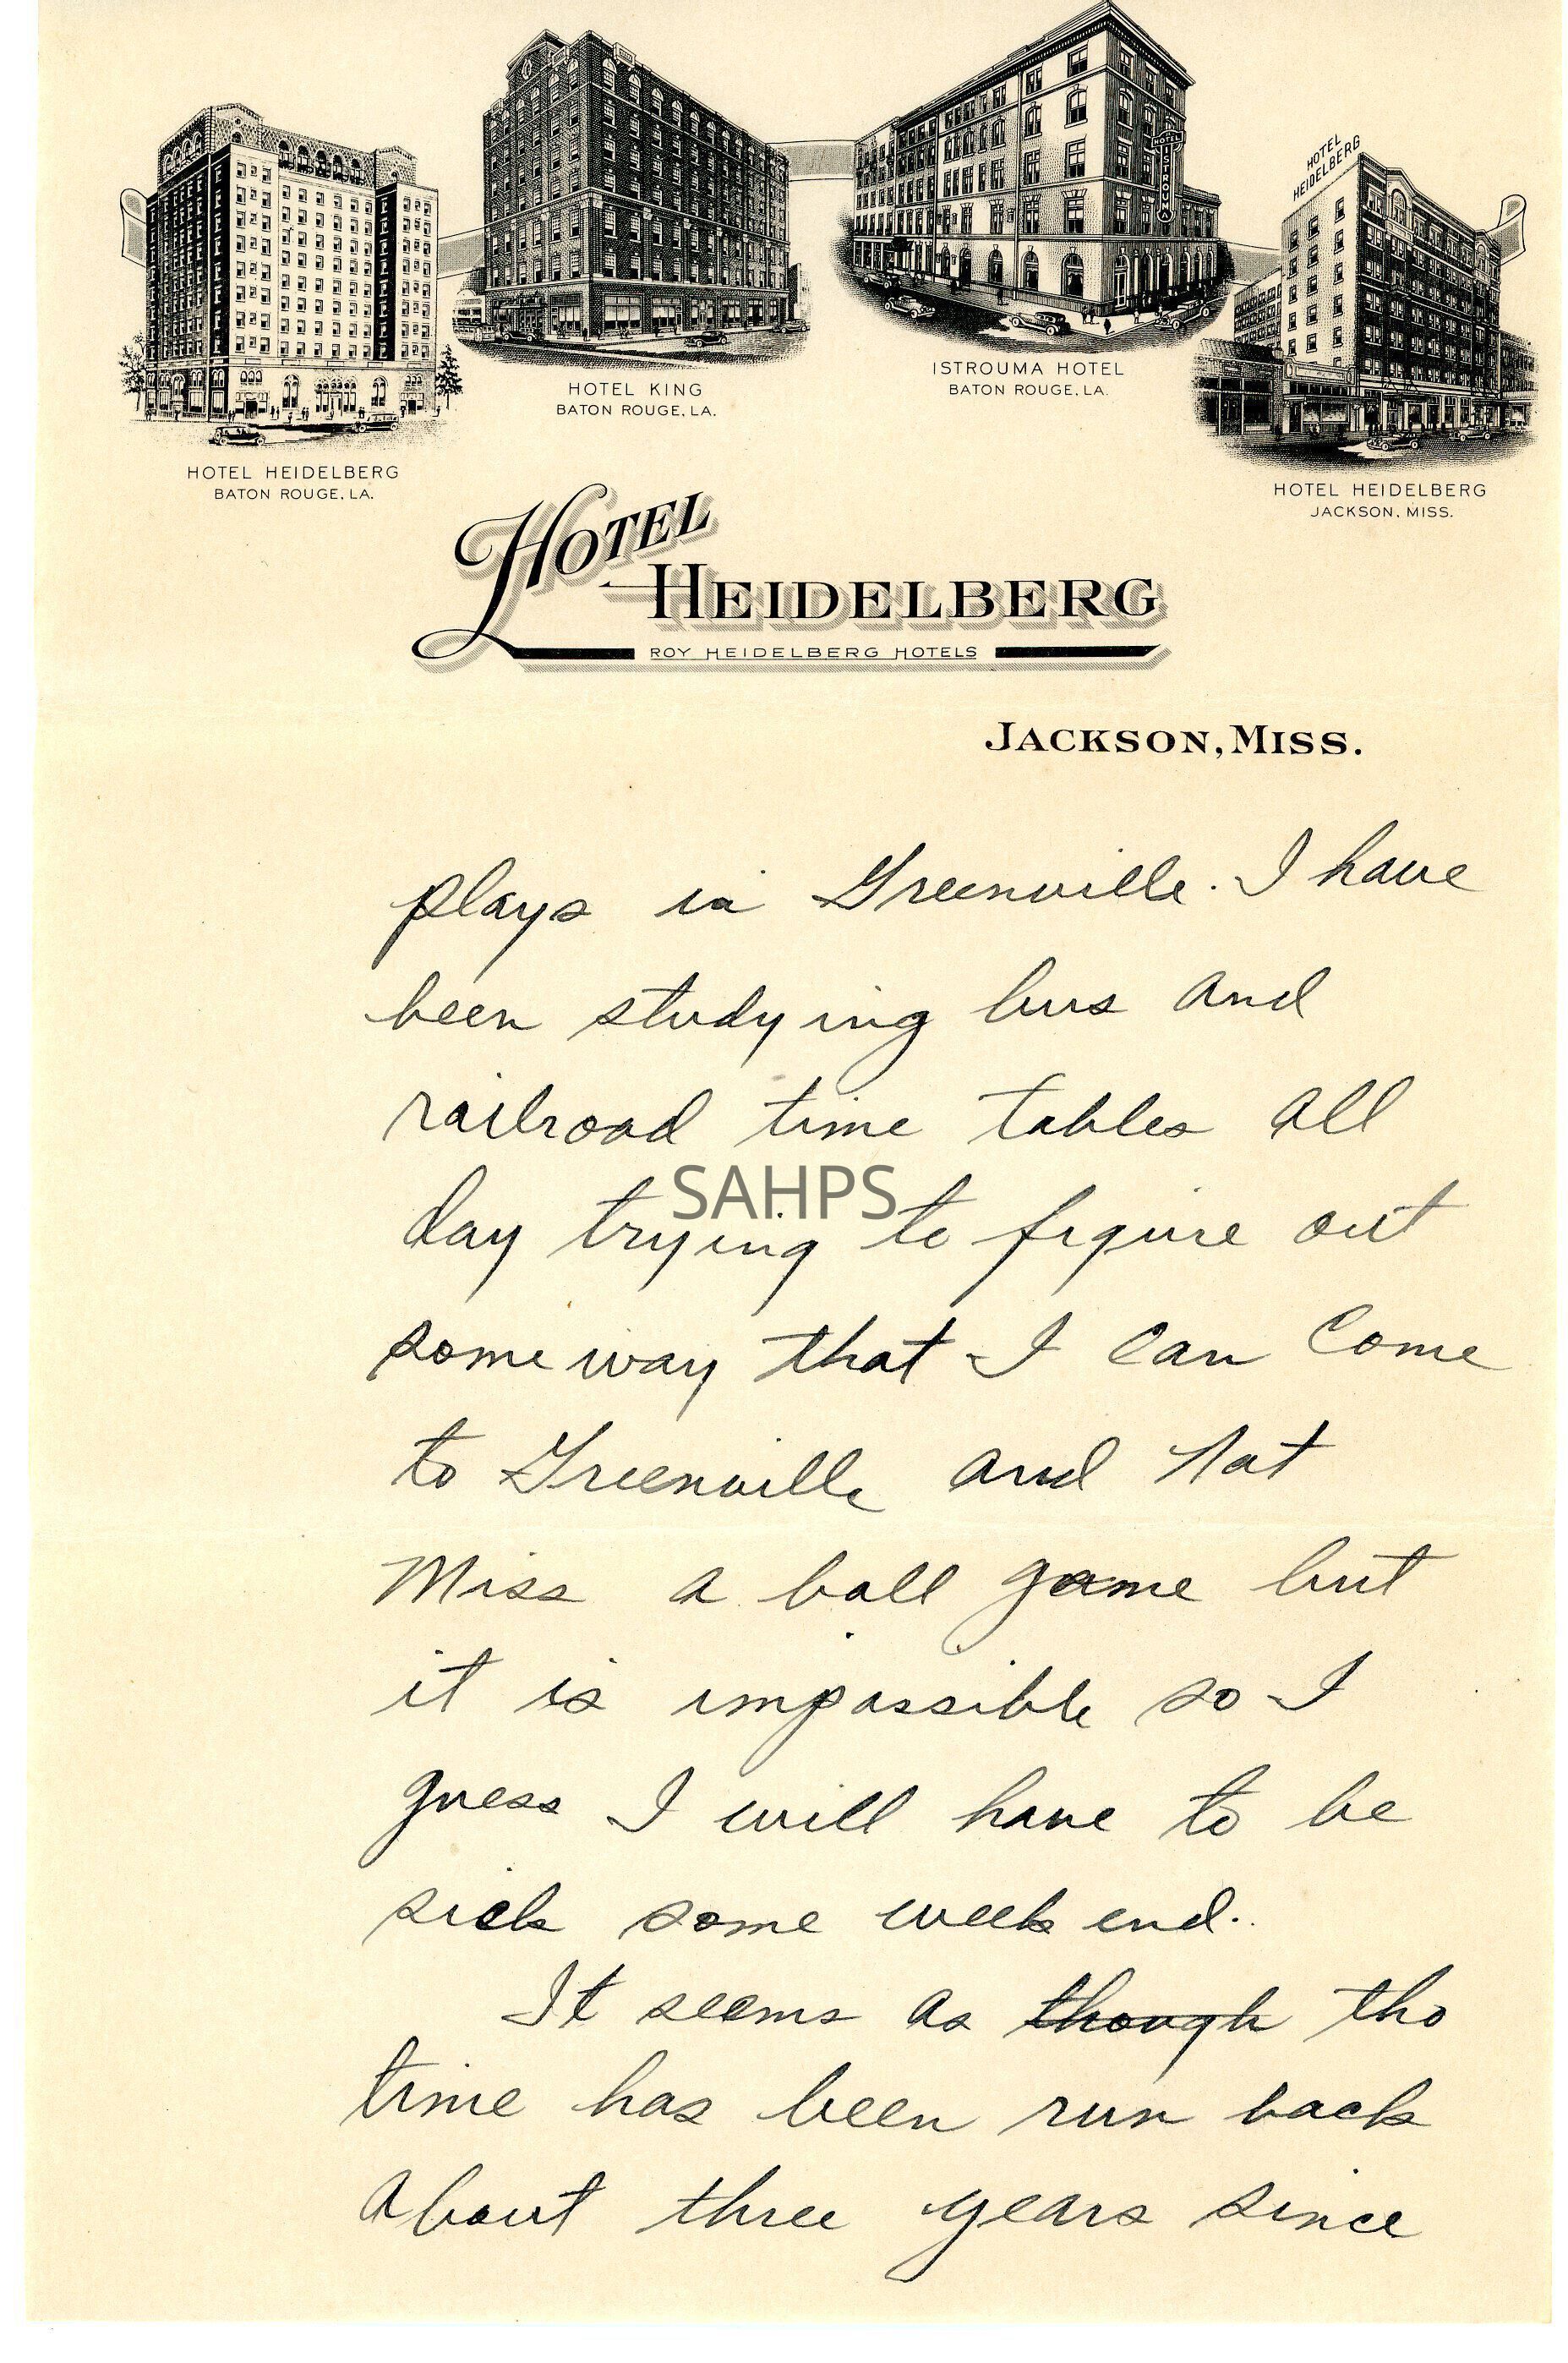 HOTEL HEIDELBERG
BATON ROUGE, LA.
HOTEL KING
BATON ROUGE, LA.
HOTEL ISTROUMA
ISTROUMA HOTEL
BATON ROUGE, LA.
HOTEL
HEIDELBERG
HOTEL HEIDELBERG
JACKSON, MISS.
HOTEL
HEIDELBERG
ROY HEIDELBERG HOTELS
JACKSON, MISS.
plays in Greenville. I have
been studying bus and
railroad time tables all
day trying to figure out
SAHPS
some way that I can Come
to Greenville and Not
Miss a ball game but
it is impossible so I
guess I will have to be
sick some week end.
It seems as though tho
time has been run back
About three years since